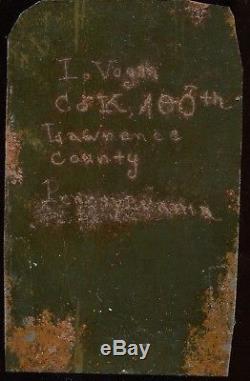 I, Vogan
Co K, 100th
Lawrence
County
Pennsylvania
ebay